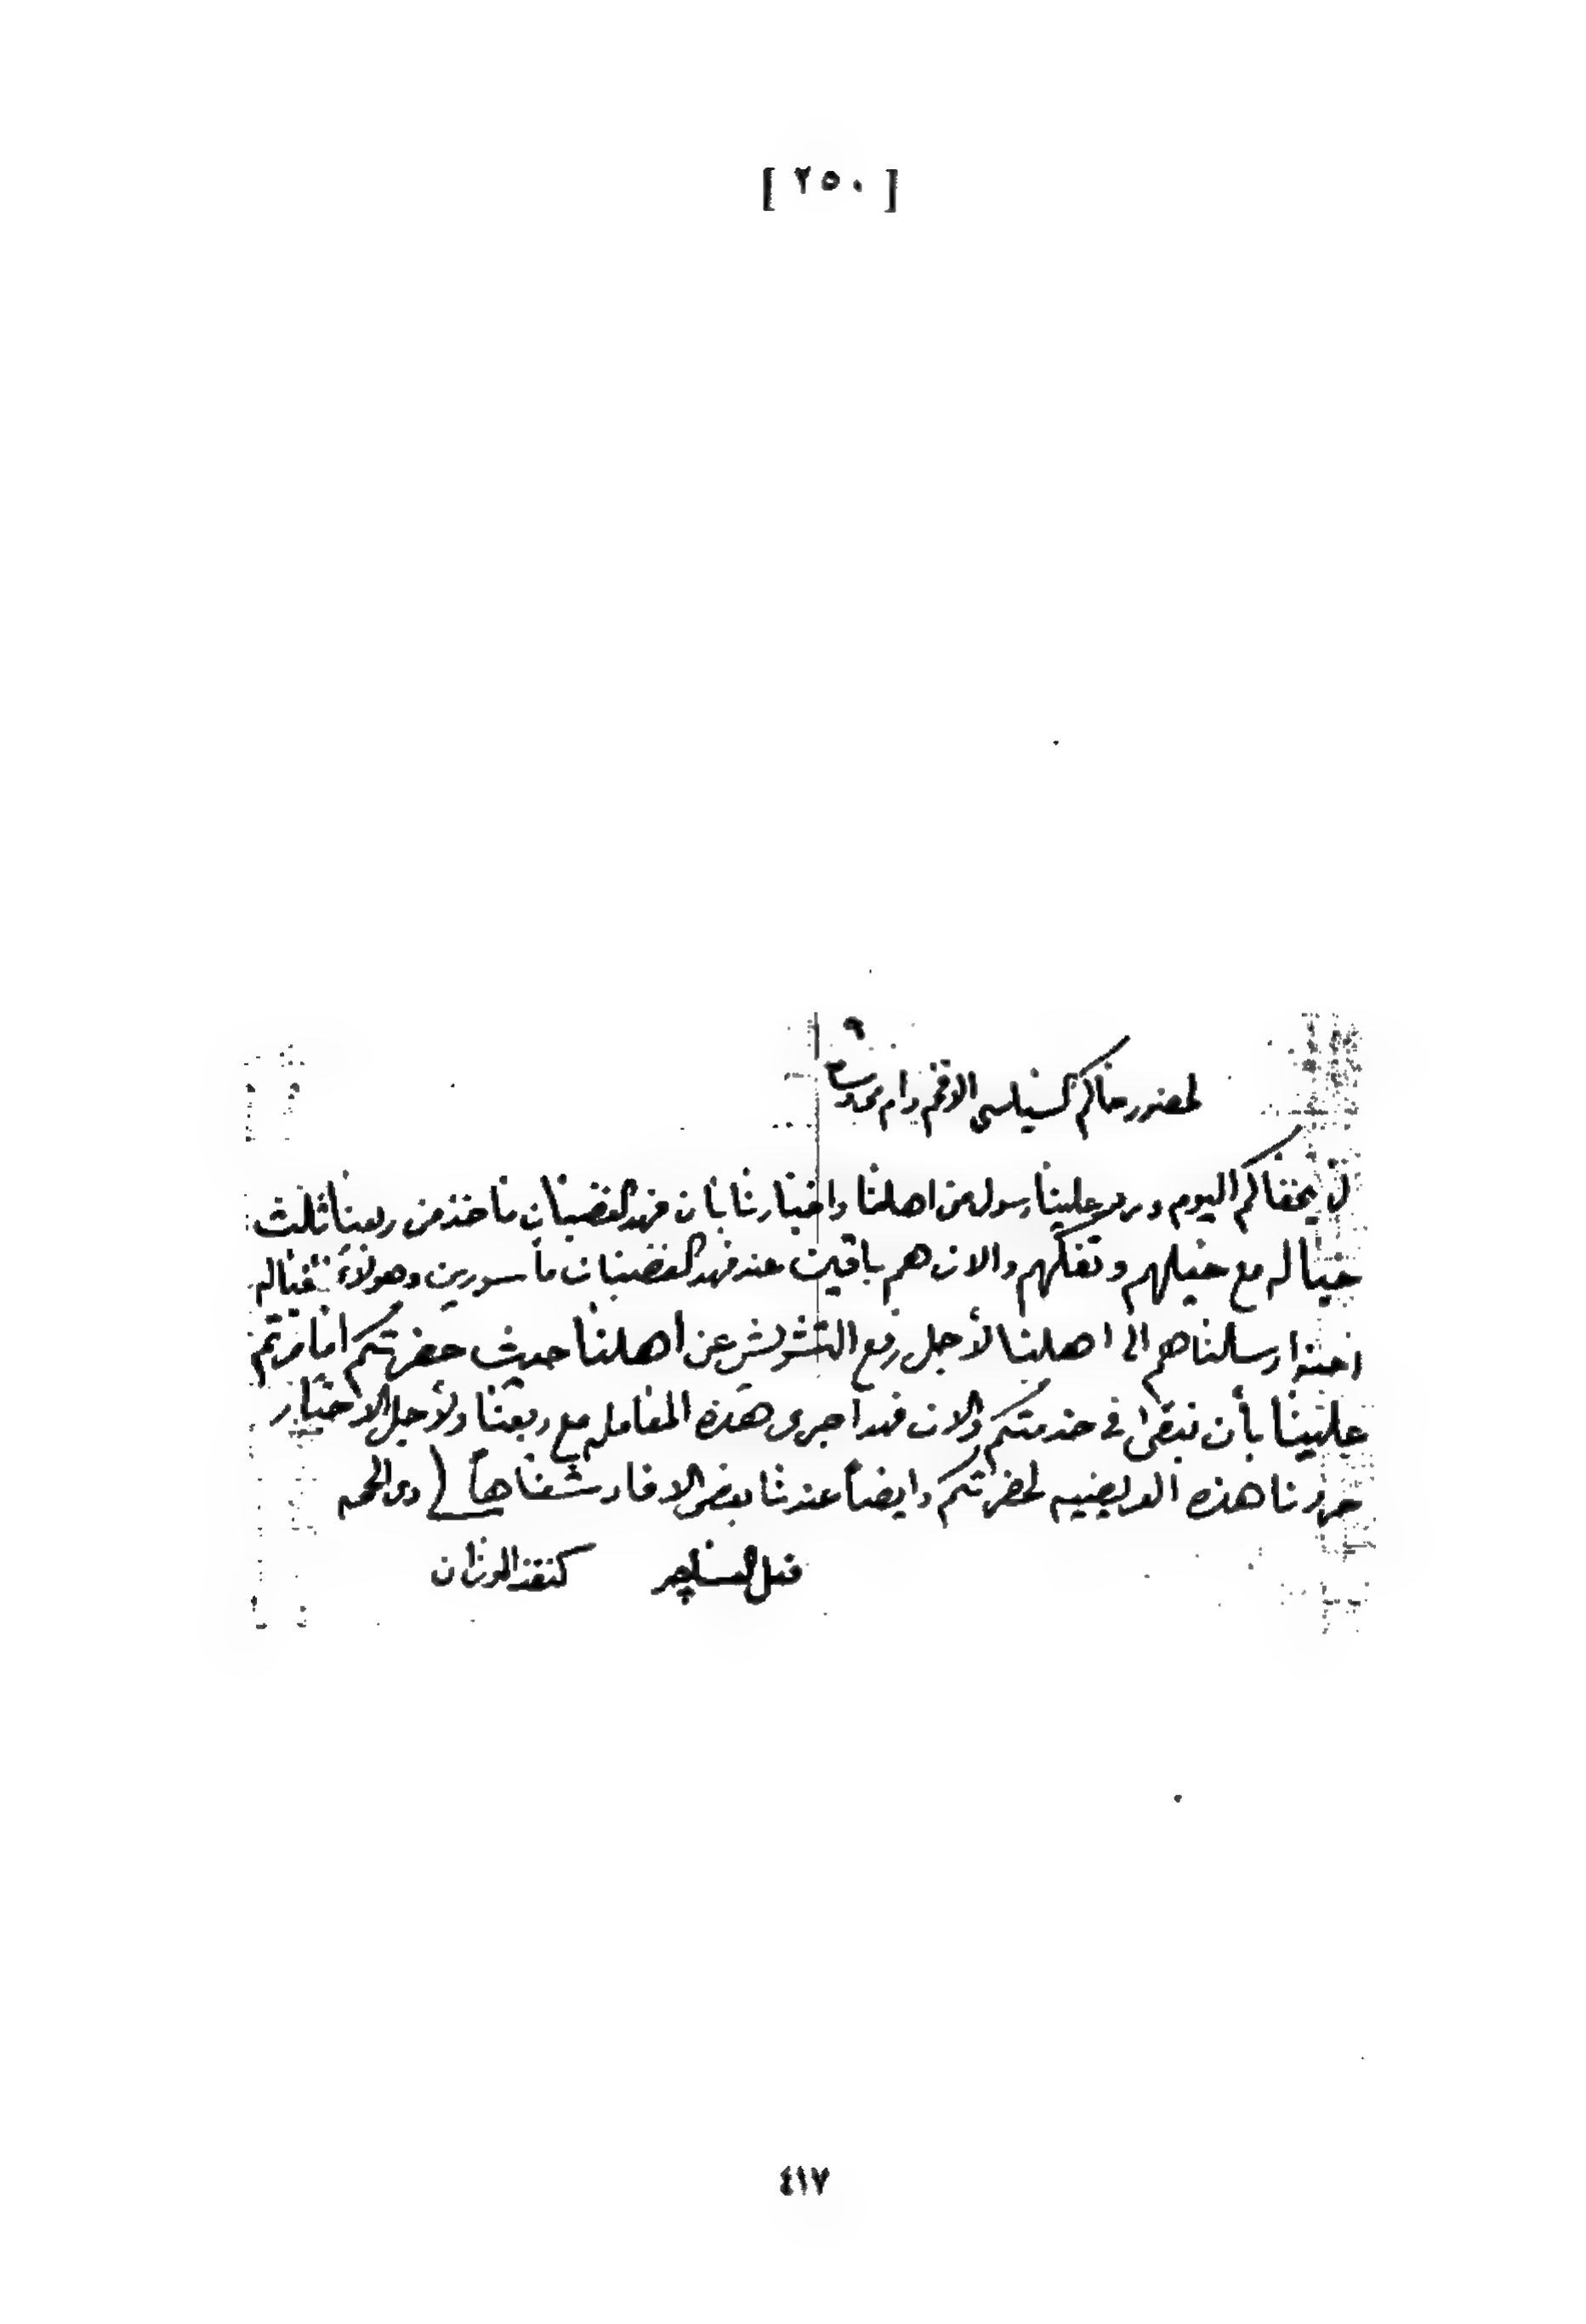 [ ٢٥٠ ]
لحضور حاكم السياسي الافخم دام
لن يخفاكم اليوم ورد علينا رسول من اهلنا واخبارنا بان فهد الغضبان ماخذ من ربعنا ثلث
خياله مع خيلهم وتفكهم والان هم باقين عند فهد الغضبان مأسورين وهولاء الخياله
احنا ارسلناهم الى اهلنا لأجل رفع التشويش عن اهلنا حيث حضرتكم امامرتم
علينا بأن نبقى في خدمتكم والان فهد اجرى هذه المعامله مع ربعنا ولأجل الاخبار
حررنا هذه العريضه لحضرتكم وايضاً عندنا بعض الافاد شفاهاً
كنعد الوزان
٤١٧